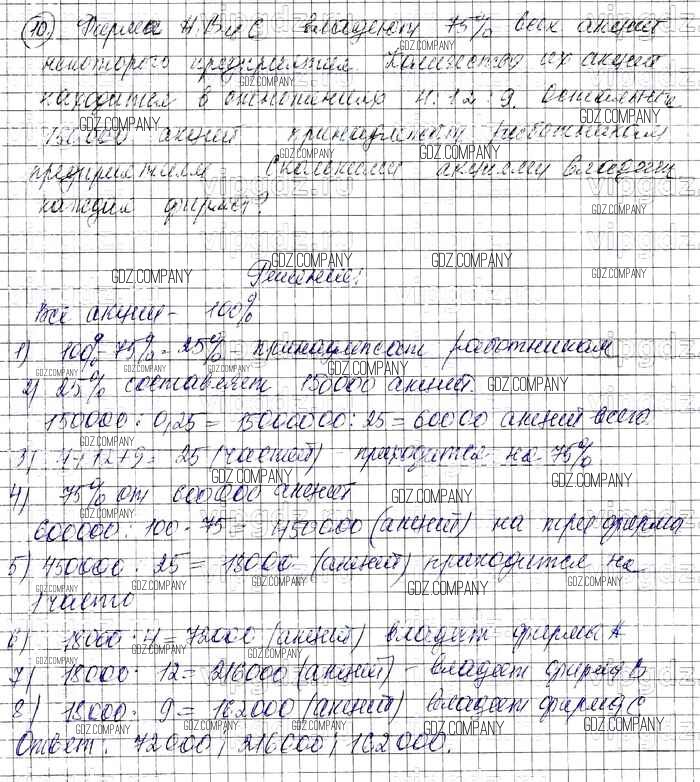 10) Фирмы А, В и С владеют 75% всех акций
некоторого предприятия. Количество их акций
находится в отношениях 4:12:9. Остальные
150000 акций принадлежат работникам
предприятием. Сколькими акциями владеет
каждая фирма?
Решение:
Все акции - 100%
1) 100% - 75% = 25% - принадлежат работникам
2) 25% составляет 150000 акций.
150000 : 0,25 = 15000000 : 25 = 60000 акций всего
3) 4+12+9 = 25 (частей) - приходится на 75%
4) 75% от 600000 акций
600000 : 100 · 75 = 450000 (акций) на три фирмы
5) 450000 : 25 = 18000 (акций) приходится на
1 часть
6) 18000 · 4 = 72000 (акций) владеет фирмы А
7) 18000 · 12 = 216000 (акций) - владеет фирма В
8) 18000 · 9 = 162000 (акций) владеет фирма С
Ответ: 72000; 216000; 162000.
GDZ.COMPANY
vipgdz.ru